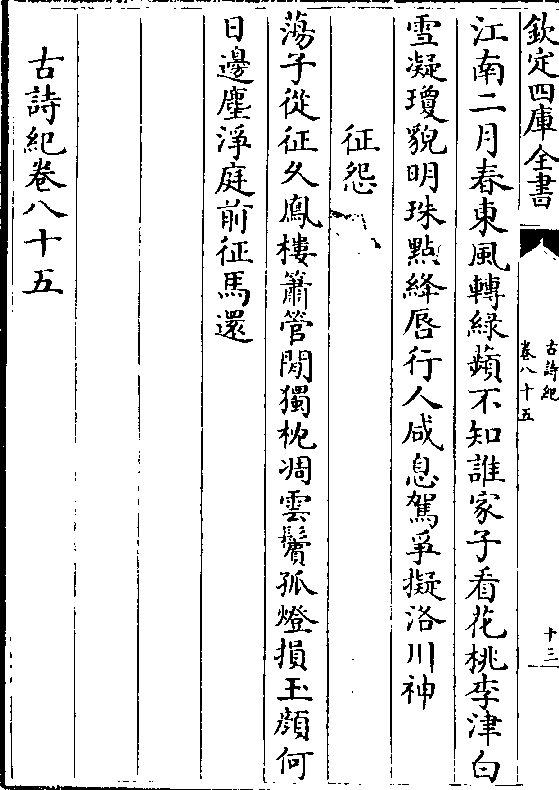 欽定四庫全書
古詩紀
卷八十五
十三
江南二月春東風轉綠蘋不知誰家子看花桃李津白
雪凝瓊貌明珠點絳唇行人咸息駕爭擬洛川神
征怨
蕩子從征久鳳樓簫管閒獨枕凋雲鬢孤燈損玉顔何
日邊塵淨庭前征馬還
古詩紀卷八十五